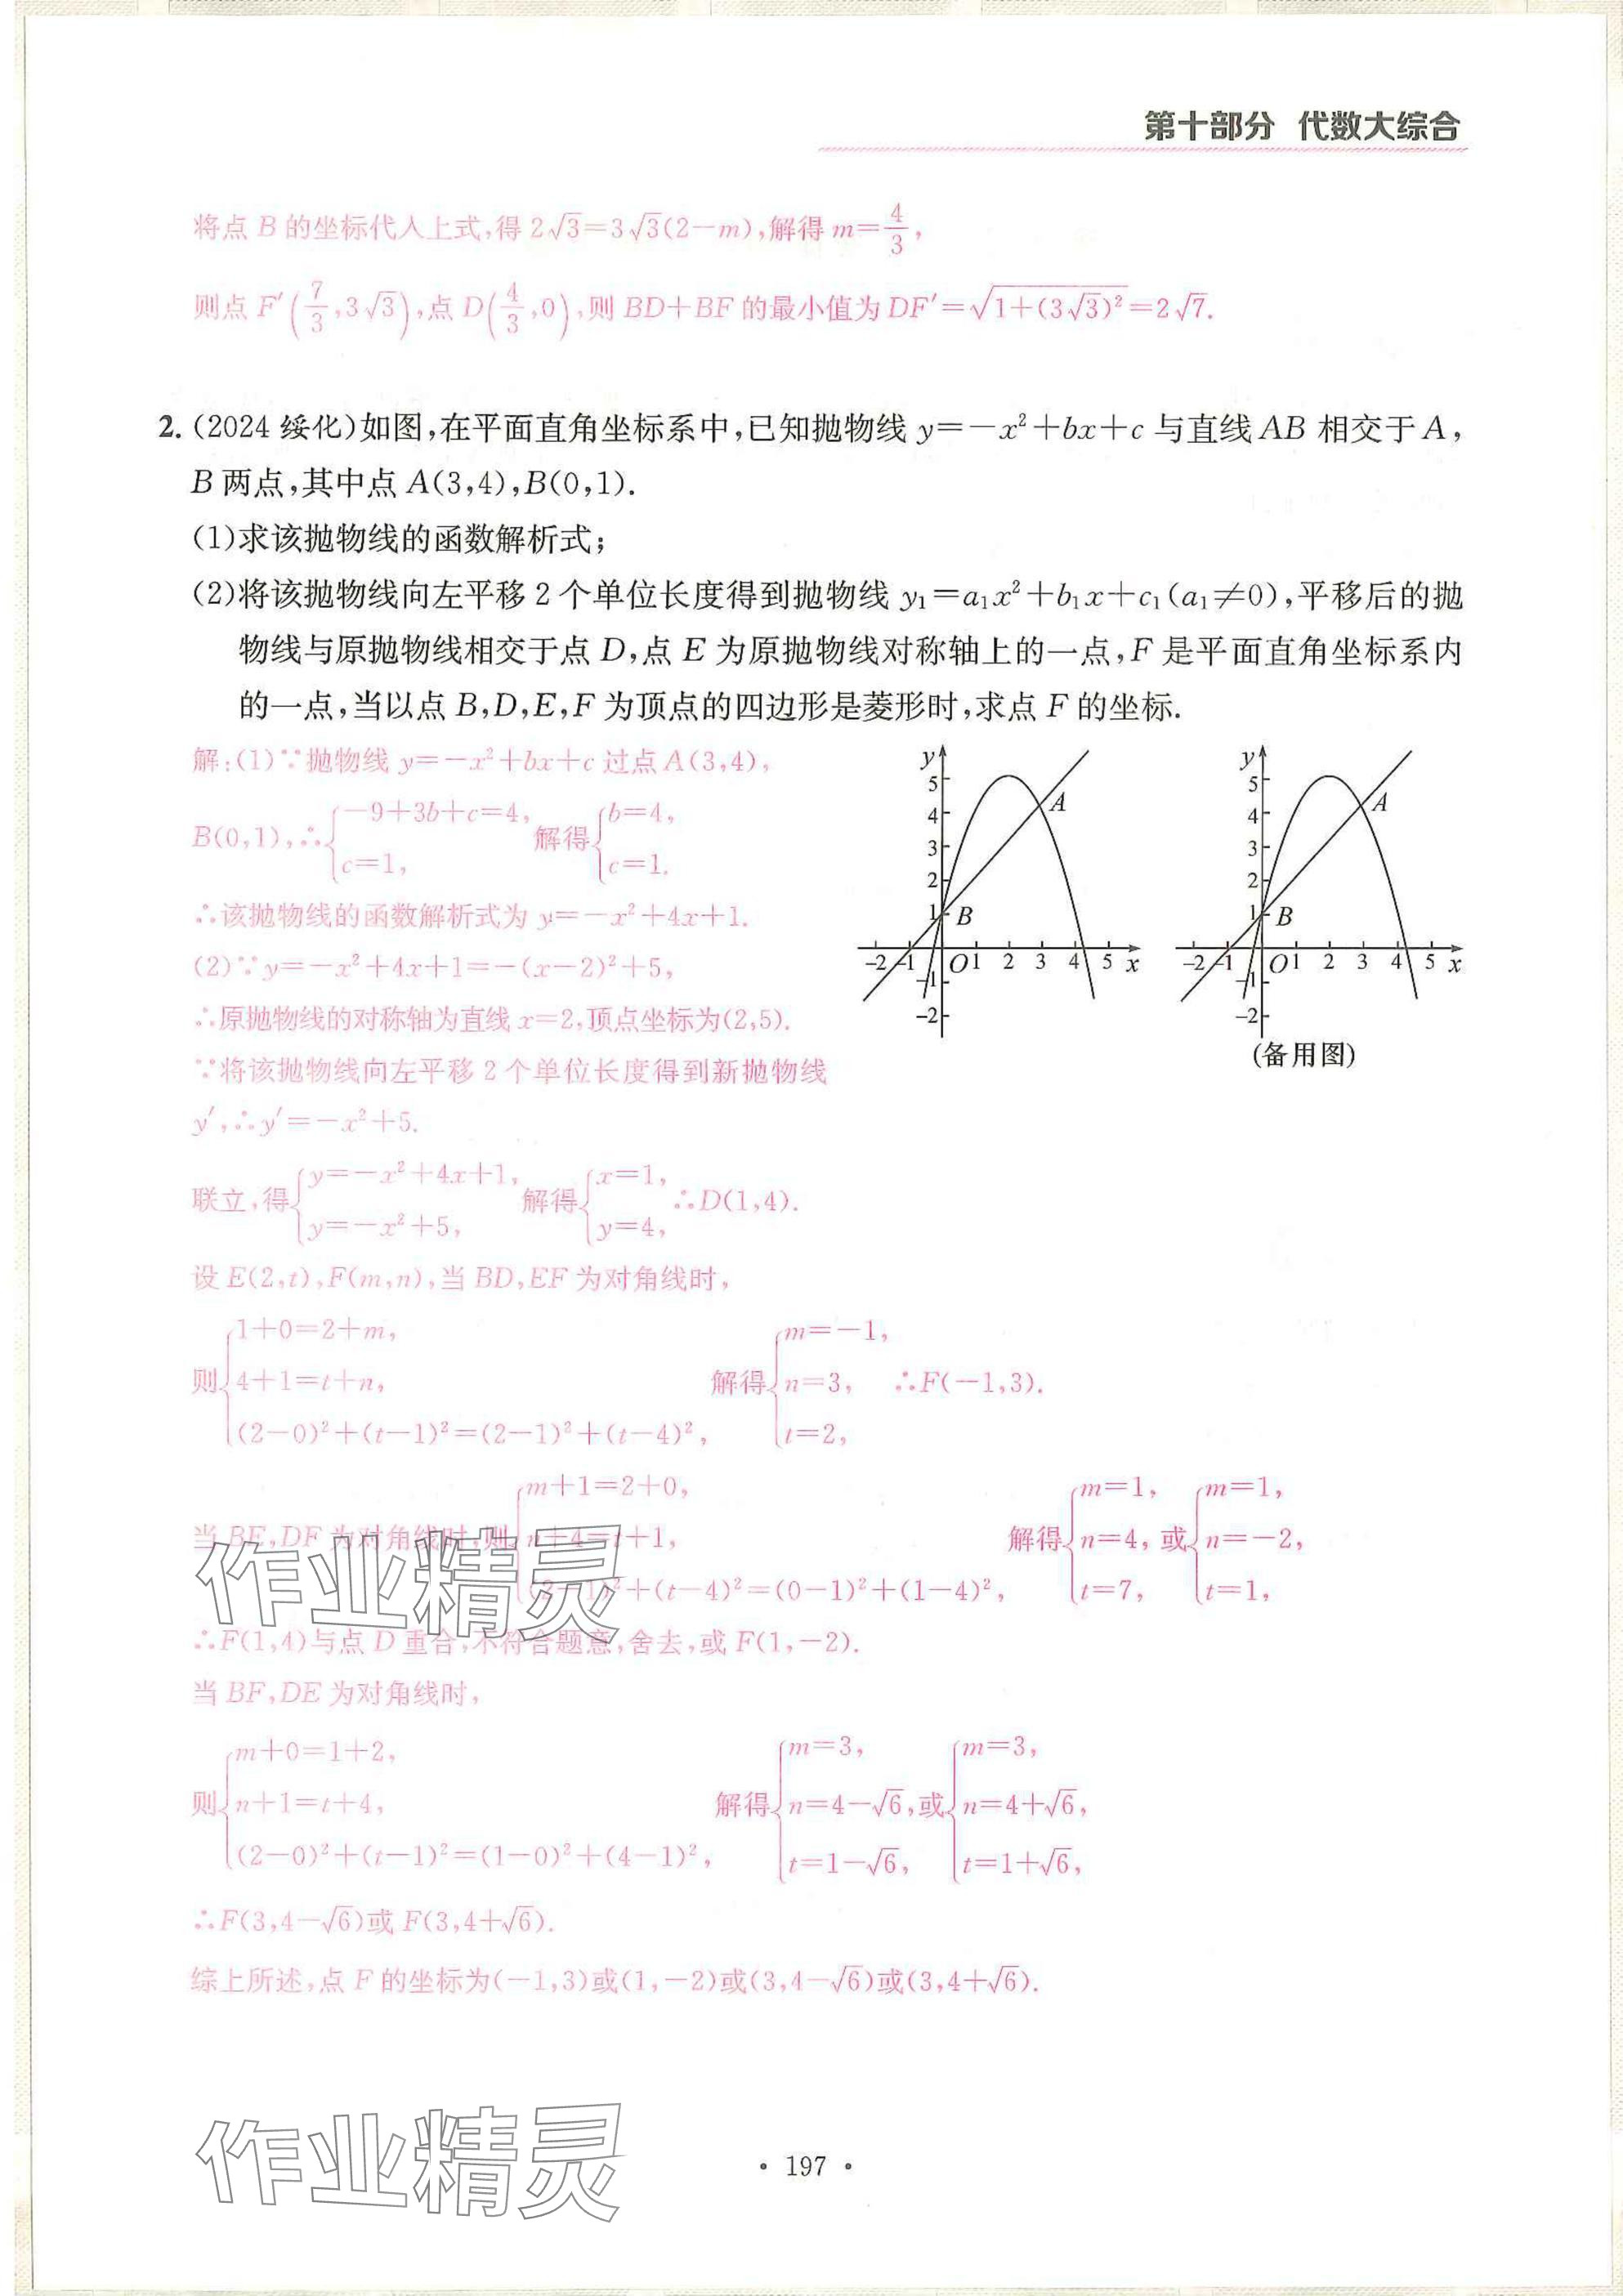 第十部分 代数大综合
将点 B 的坐标代人上式,得 2√3=3√3(2-m),解得 m=4/3,
则点 F′(7/3,3√3),点 D(4/3,0),则 BD+BF 的最小值为 DF′=√(1+(3√3)²)=2√7.
2. (2024 绥化)如图,在平面直角坐标系中,已知抛物线 y=-x²+bx+c 与直线 AB 相交于 A,
B 两点,其中点 A(3,4),B(0,1).
(1)求该抛物线的函数解析式;
(2)将该抛物线向左平移 2 个单位长度得到抛物线 y₁=a₁x²+b₁x+c₁(a₁≠0),平移后的抛
物线与原抛物线相交于点 D,点 E 为原抛物线对称轴上的一点,F 是平面直角坐标系内
的一点,当以点 B,D,E,F 为顶点的四边形是菱形时,求点 F 的坐标.
解:(1)∵抛物线 y=-x²+bx+c 过点 A(3,4),
B(0,1),∴{-9+3b+c=4, c=1, 解得{b=4, c=1.
∴该抛物线的函数解析式为 y=-x²+4x+1.
(2)∵y=-x²+4x+1=-(x-2)²+5,
∴原抛物线的对称轴为直线 x=2,顶点坐标为(2,5).
∵将该抛物线向左平移 2 个单位长度得到新抛物线
y′,∴y′=-x²+5.
y 5 4 3 2 1 A B -2 -1 O 1 2 3 4 5 x -1 -2
y 5 4 3 2 1 A B -2 -1 O 1 2 3 4 5 x -1 -2
(备用图)
联立,得{y=-x²+4x+1, y=-x²+5, 解得{x=1, y=4, ∴D(1,4).
设 E(2,t),F(m,n),当 BD,EF 为对角线时,
则{1+0=2+m, 4+1=t+n, (2-0)²+(t-1)²=(2-1)²+(t-4)², 解得{m=-1, n=3, t=2, ∴F(-1,3).
当 BE,DF 为对角线时,则{m+1=2+0, n+4=t+1, (2-1)²+(t-4)²=(0-1)²+(1-4)², 解得{m=1, n=4, t=7, 或{m=1, n=-2, t=1,
∴F(1,4)与点 D 重合,不符合题意,舍去,或 F(1,-2).
当 BF,DE 为对角线时,
则{m+0=1+2, n+1=t+4, (2-0)²+(t-1)²=(1-0)²+(4-1)², 解得{m=3, n=4-√6, t=1-√6, 或{m=3, n=4+√6, t=1+√6,
∴F(3,4-√6)或 F(3,4+√6).
综上所述,点 F 的坐标为(-1,3)或(1,-2)或(3,4-√6)或(3,4+√6).
作业精灵
作业精灵
• 197 •